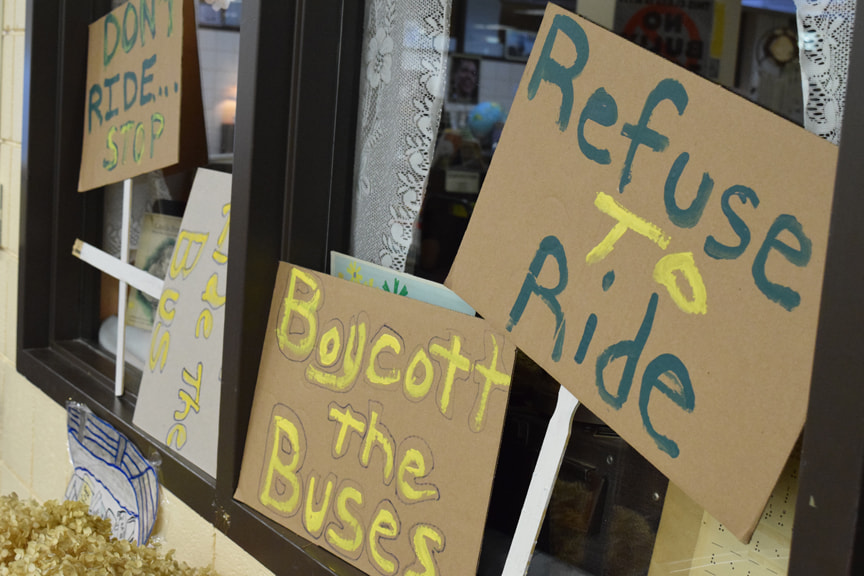 DON'T
RIDE...
STOP
The
Bus
Boycott
the
Buses
Refuse
To
Ride
NO